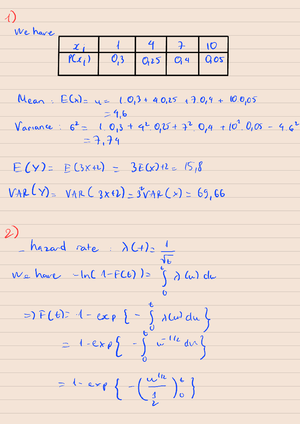 1)
We have
x_i 1 4 7 10
P(x_i) 0,3 0,25 0,4 0,05
Mean : E(x) = u = 1.0,3 + 4.0,25 + 7.0,4 + 10.0,05
= 4,6
Variance : σ² = 1.0,3 + 4².0,25 + 7².0,4 + 10².0,05 - 4.6²
= 7,74
E(Y) = E(3X+2) = 3E(X)+2 = 15,8
VAR(Y) = VAR(3X+2) = 3²VAR(X) = 69,66
2)
- hazard rate : λ(t) = 1/√t
We have -ln(1-F(t)) = ∫₀ᵗ λ(u) du
=> F(t) = 1 - exp{ - ∫₀ᵗ λ(u) du }
= 1 - exp{ - ∫₀ᵗ u^(-1/2) du }
= 1 - exp{ - ( u^(1/2) / (1/2) )₀ᵗ }